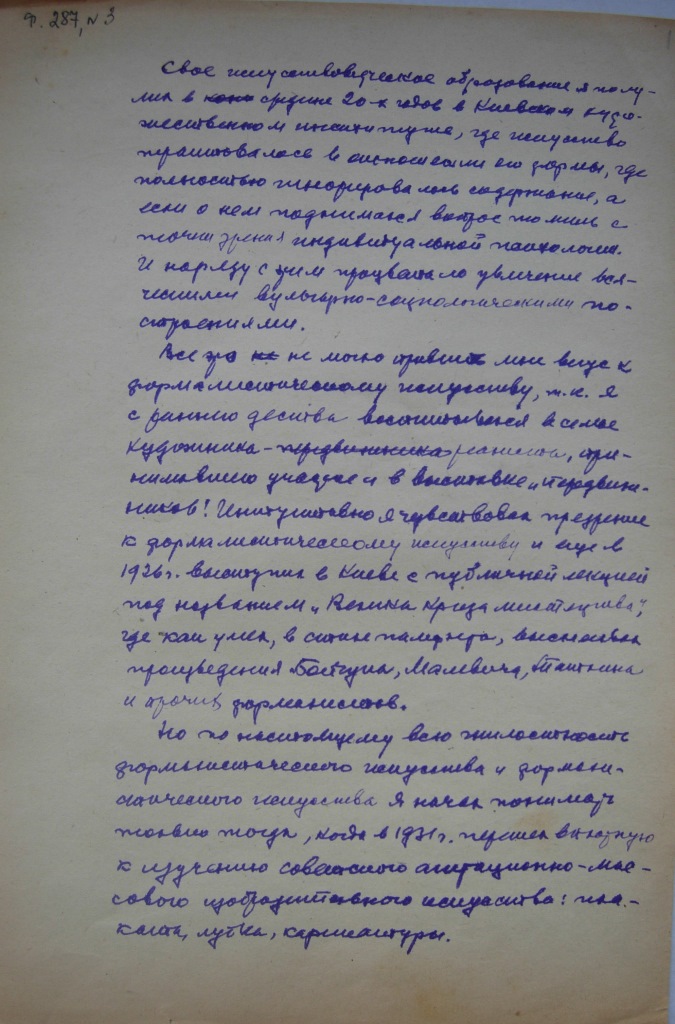 Ф. 287, N 3
Свое искусствоведческое образование я полу-
чил в средине 20-х годов в Киевском худо-
жественном институте, где искусство
трактовалось в отношении его формы, где
полностью игнорировалось содержание, а
если о нем поднимался вопрос то лишь с
точки зрения индивидуальной психологии.
И наряду с этим процветало увлечение вся-
ческими вульгарно-социологическими по-
строениями.
Все это не могло привить мне вкус к
формалистическому искусству, т.к. я
с раннего детства воспитывался в семье
художника-передвижника реалиста, при-
нимавшего участие и в выставке „передвиж-
ников! Интуитивно я чувствовал презрение
к формалистическому искусству и еще в
1926 г. выступил в Киеве с публичной лекцией
под названием „Велика криза мистецтва",
где как умел, в стиле памфлета, высмеивал
произведения Бойчука, Малевича, Татлина
и прочих формалистов.
Но по настоящему всю гнилостность
формалистического искусства и формали-
стического искусства я начал понимать
только тогда, когда в 1931 г. перешел вплотную
к изучению советского агитационно-мас-
сового изобразительного искусства: пла-
ката, лубка, карикатуры.